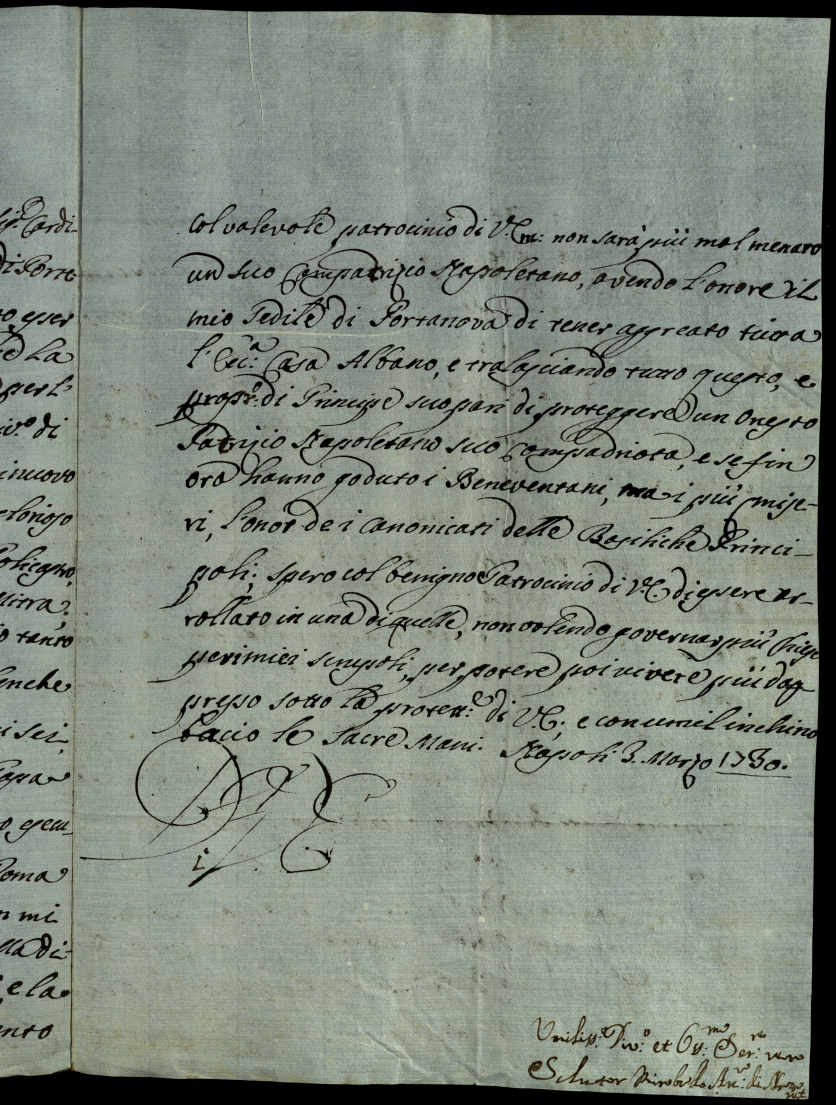 sig.r Cardi-
di Porte
to esser
te La
per l'
iv.o di
i nuovo
glorioso
Mitra,
io tanto
benche
i sei,
Papa
Roma
n mi
lla di-
e la
ento
col valevole patrocinio di V. Em: non sarà più mal menato
un suo Compatrizio Napoletano, avendo l'onore il
mio Sedile di Portanova di tener aggreato tutta
l'Ecc:a Casa Albano, e tralasciando tutto questo, e
propr.o di Principe suo pari di proteggere un Onesto
Patrizio Napoletano suo compadriota, e se fin
ora hanno goduto i Beneventani, ma i più mise-
ri, l'onor de i Canonicati delle Basiliche Princi-
pali; spero col benigno Patrocinio di V.E. di essere ar-
rollato in una di quelle, non volendo governar più Chiese
per i miei scrupoli, per potere poi vivere più dap
presso sotto la protett:e di V.E; e con umil inchino
bacio le Sacre Mani. Napoli 3. Marzo 1730.
D V E
Umiliss:o Div:o et Oss:mo Ser:re vero